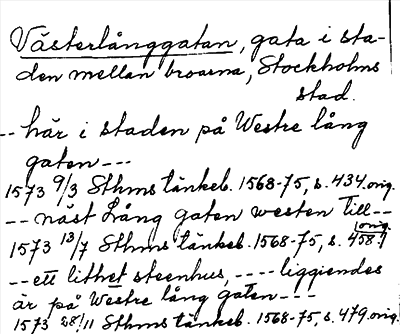 Västerlånggatan, gata i sta-
den mellan broarna, Stockholms
stad.
-- här i staden på Westre lång
gaten ---
1573 9/3 Sthms tänkeb. 1568-75, s. 434 orig.
-- näst Lång gaten westen till --
1573 13/7 Sthms tänkeb. 1568-75, s. 458 orig.
-- ett lithet steenhus, ---- liggiendes
är på Westre lång gaten ---
1573 28/11 Sthms tänkeb. 1568-75, s. 479 orig.